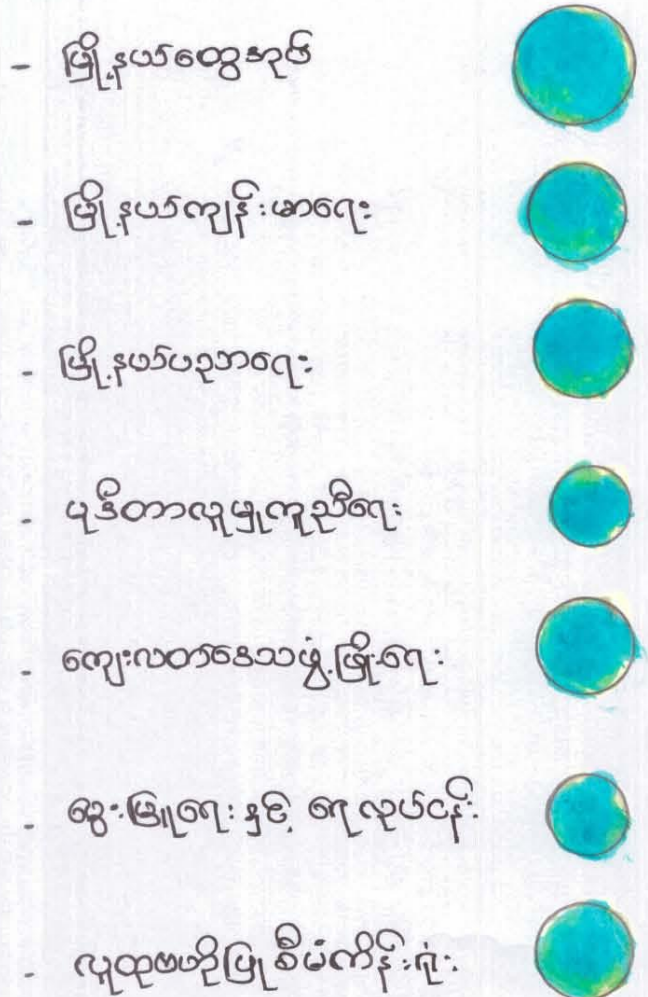 - မြို့နယ်ထွေအုပ်
- မြို့နယ်ကျန်းမာရေး
- မြို့နယ်ပညာရေး
- မုဒိတာလူမှုကူညီရေး
- ကျေးလတ်ဒေသဖွံ့ဖြိုးရေး
- မွေးမြူရေးနှင့် ရေလုပ်ငန်း
- လူထုဗဟိုပြုစီမံကိန်းရုံး